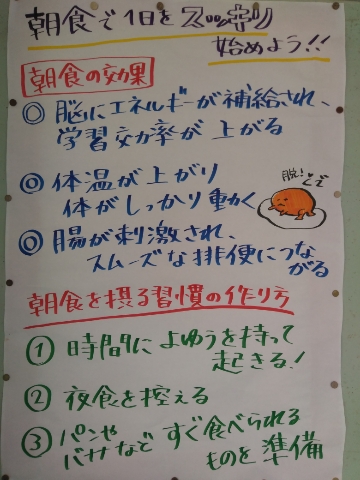 朝食で1日をスッキリ
始めよう!!
朝食の効果
◎ 脳にエネルギーが補給され、
学習効率が上がる
◎ 体温が上がり
体がしっかり動く
◎ 腸が刺激され、
スムーズな排便につな
がる
朝食を摂る習慣の作り方
① 時間によゆうを持って
起きる!
② 夜食を控える
③ パンや
バナナなど すぐ食べられる
ものを準備